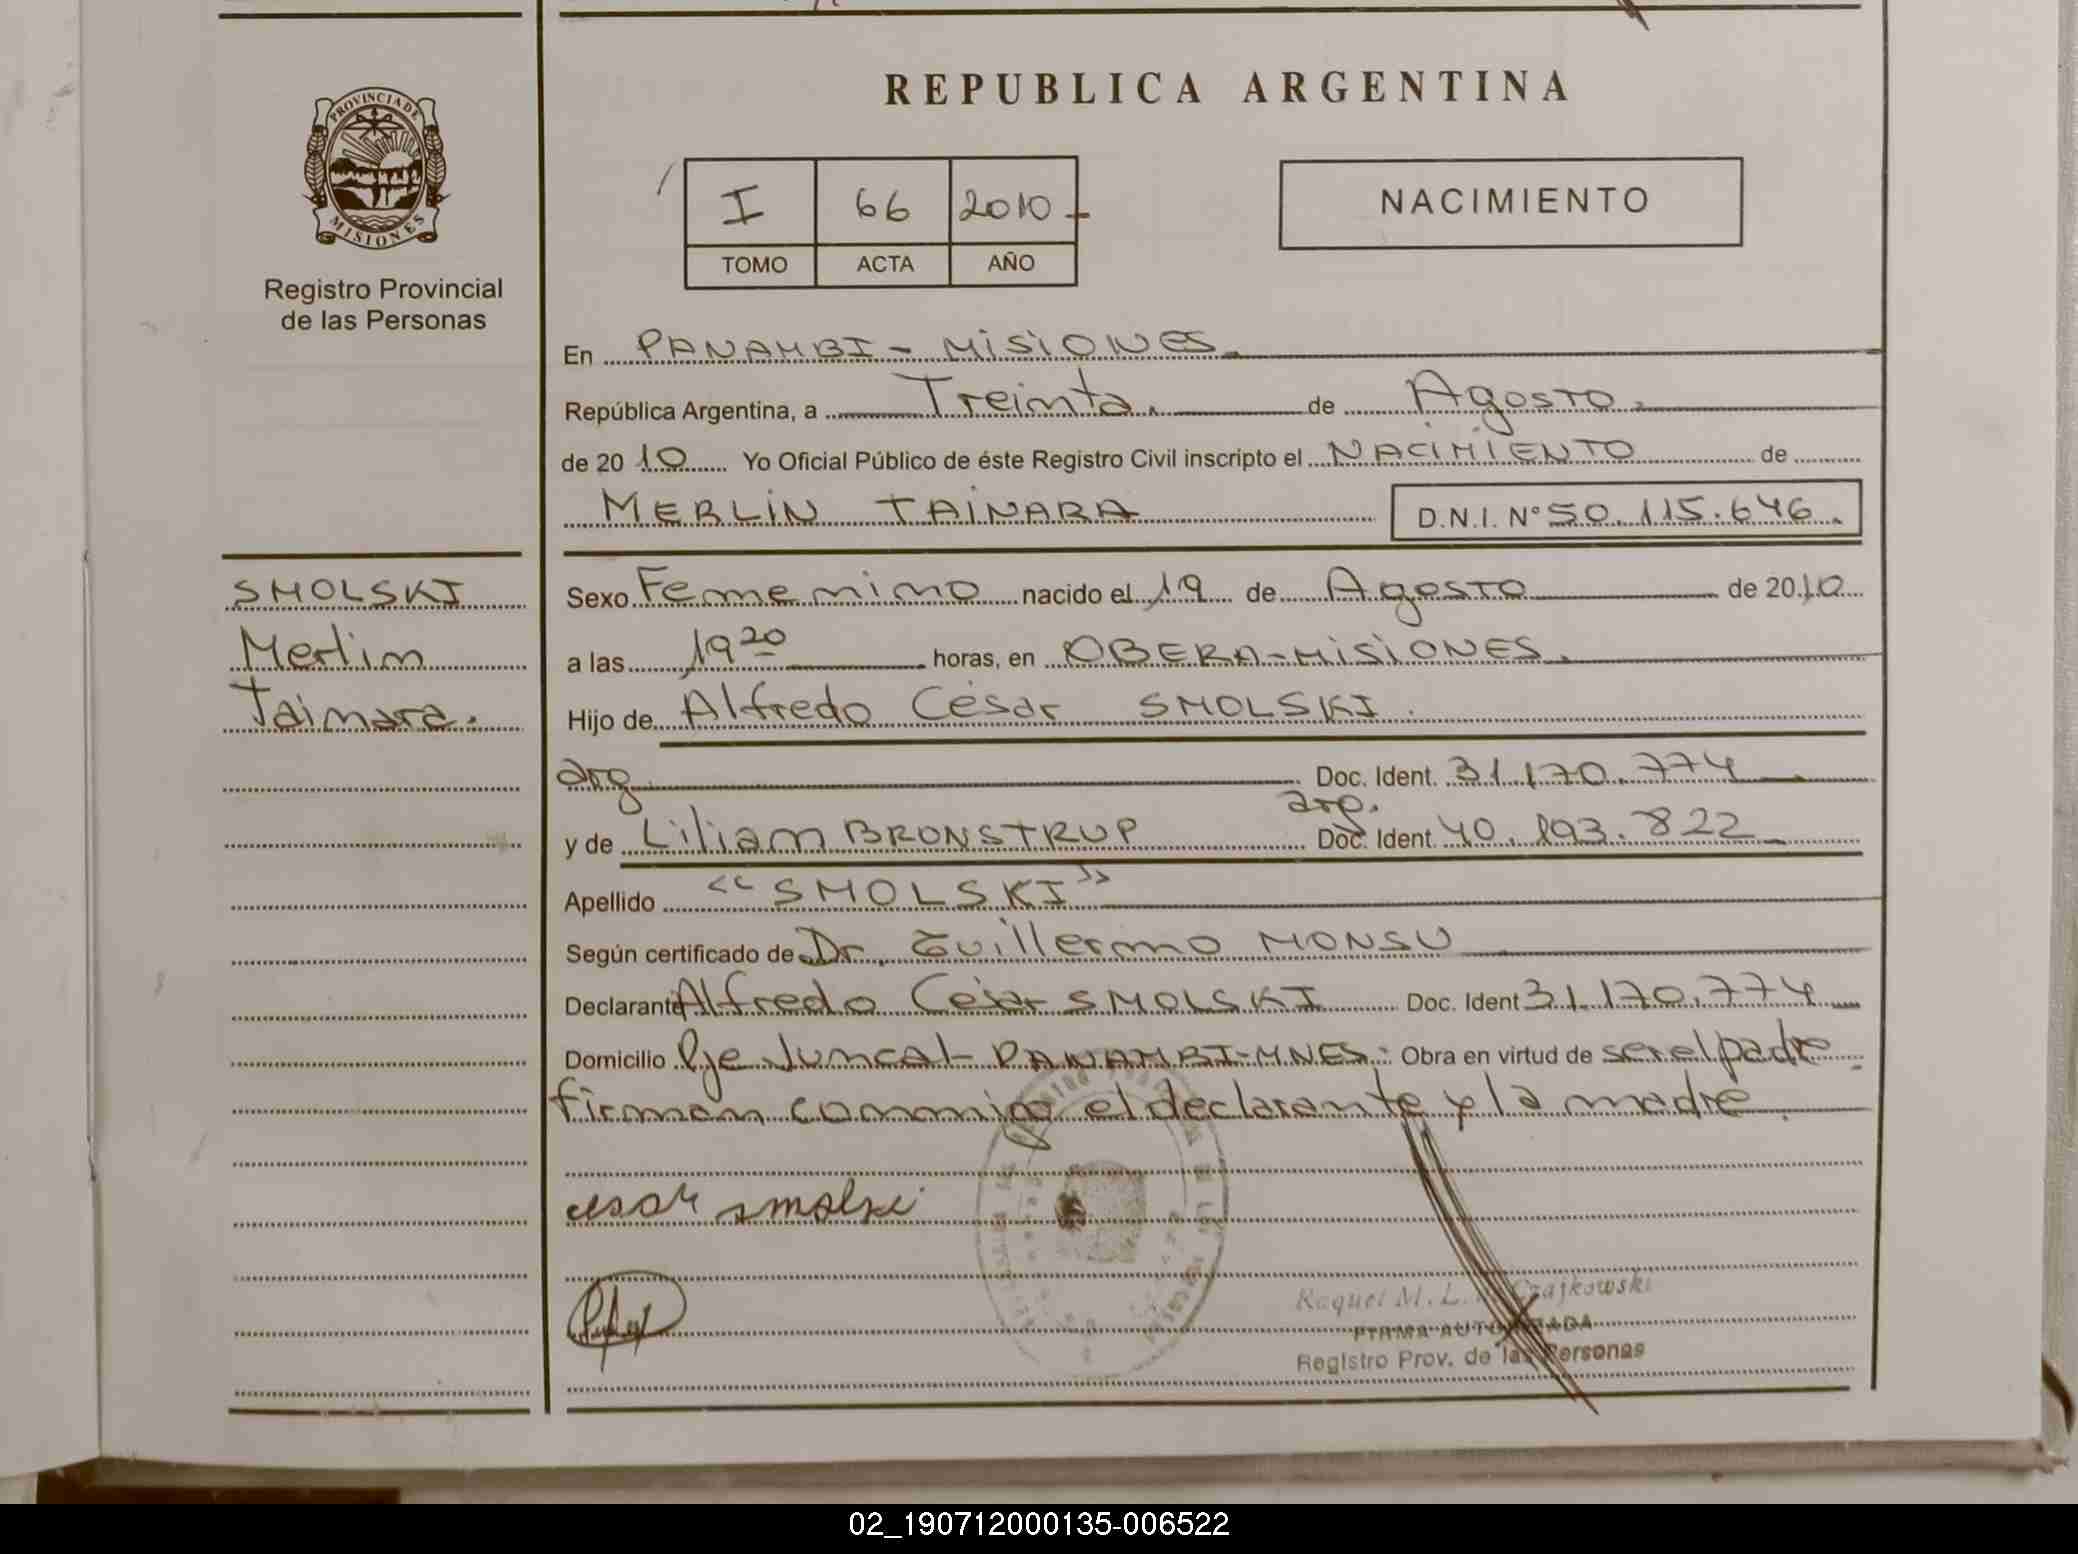 REPUBLICA ARGENTINA
PROVINCIA DE
MISIONES
Registro Provincial
de las Personas
I 66 2010
TOMO ACTA AÑO
NACIMIENTO
En PANAMBI - MISIONES.
República Argentina, a Treinta. de Agosto.
de 20 10 Yo Oficial Público de éste Registro Civil inscripto el NACIMIENTO de
MERLIN TAINARA D.N.I. N° 50.115.646.
SMOLSKI
Merlin
Tainara.
Sexo Femenino nacido el 19 de Agosto de 2010
a las 19 20 horas, en OBERA-MISIONES.
Hijo de Alfredo César SMOLSKI.
arg. Doc. Ident. 31.170.774
arg.
y de Lilian BRONSTRUP Doc. Ident. 40.193.822
Apellido "SMOLSKI"
Según certificado de Dr. Guillermo MONSU
Declarante Alfredo César SMOLSKI Doc. Ident 31.170.774
Domicilio Pje Juncal - PANAMBI-MNES. Obra en virtud de ser el padre
firman conmigo el declarante y la madre.
cesar smolski
Raquel M. L. Czajkowski
FIRMA AUTORIZADA
Registro Prov. de las Personas
02_190712000135-006522